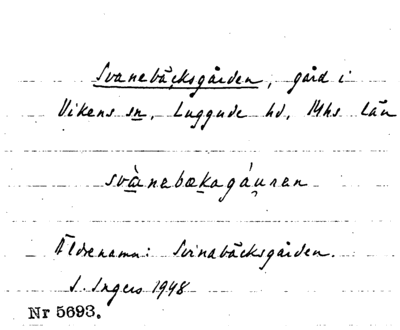 Svanebäcksgården, gård i
Vikens sn, Luggude hd, Mhs län
svànebækagáuren
Äldre namn: Svinabäcksgården.
I. Ingers 1948
Nr 5693.